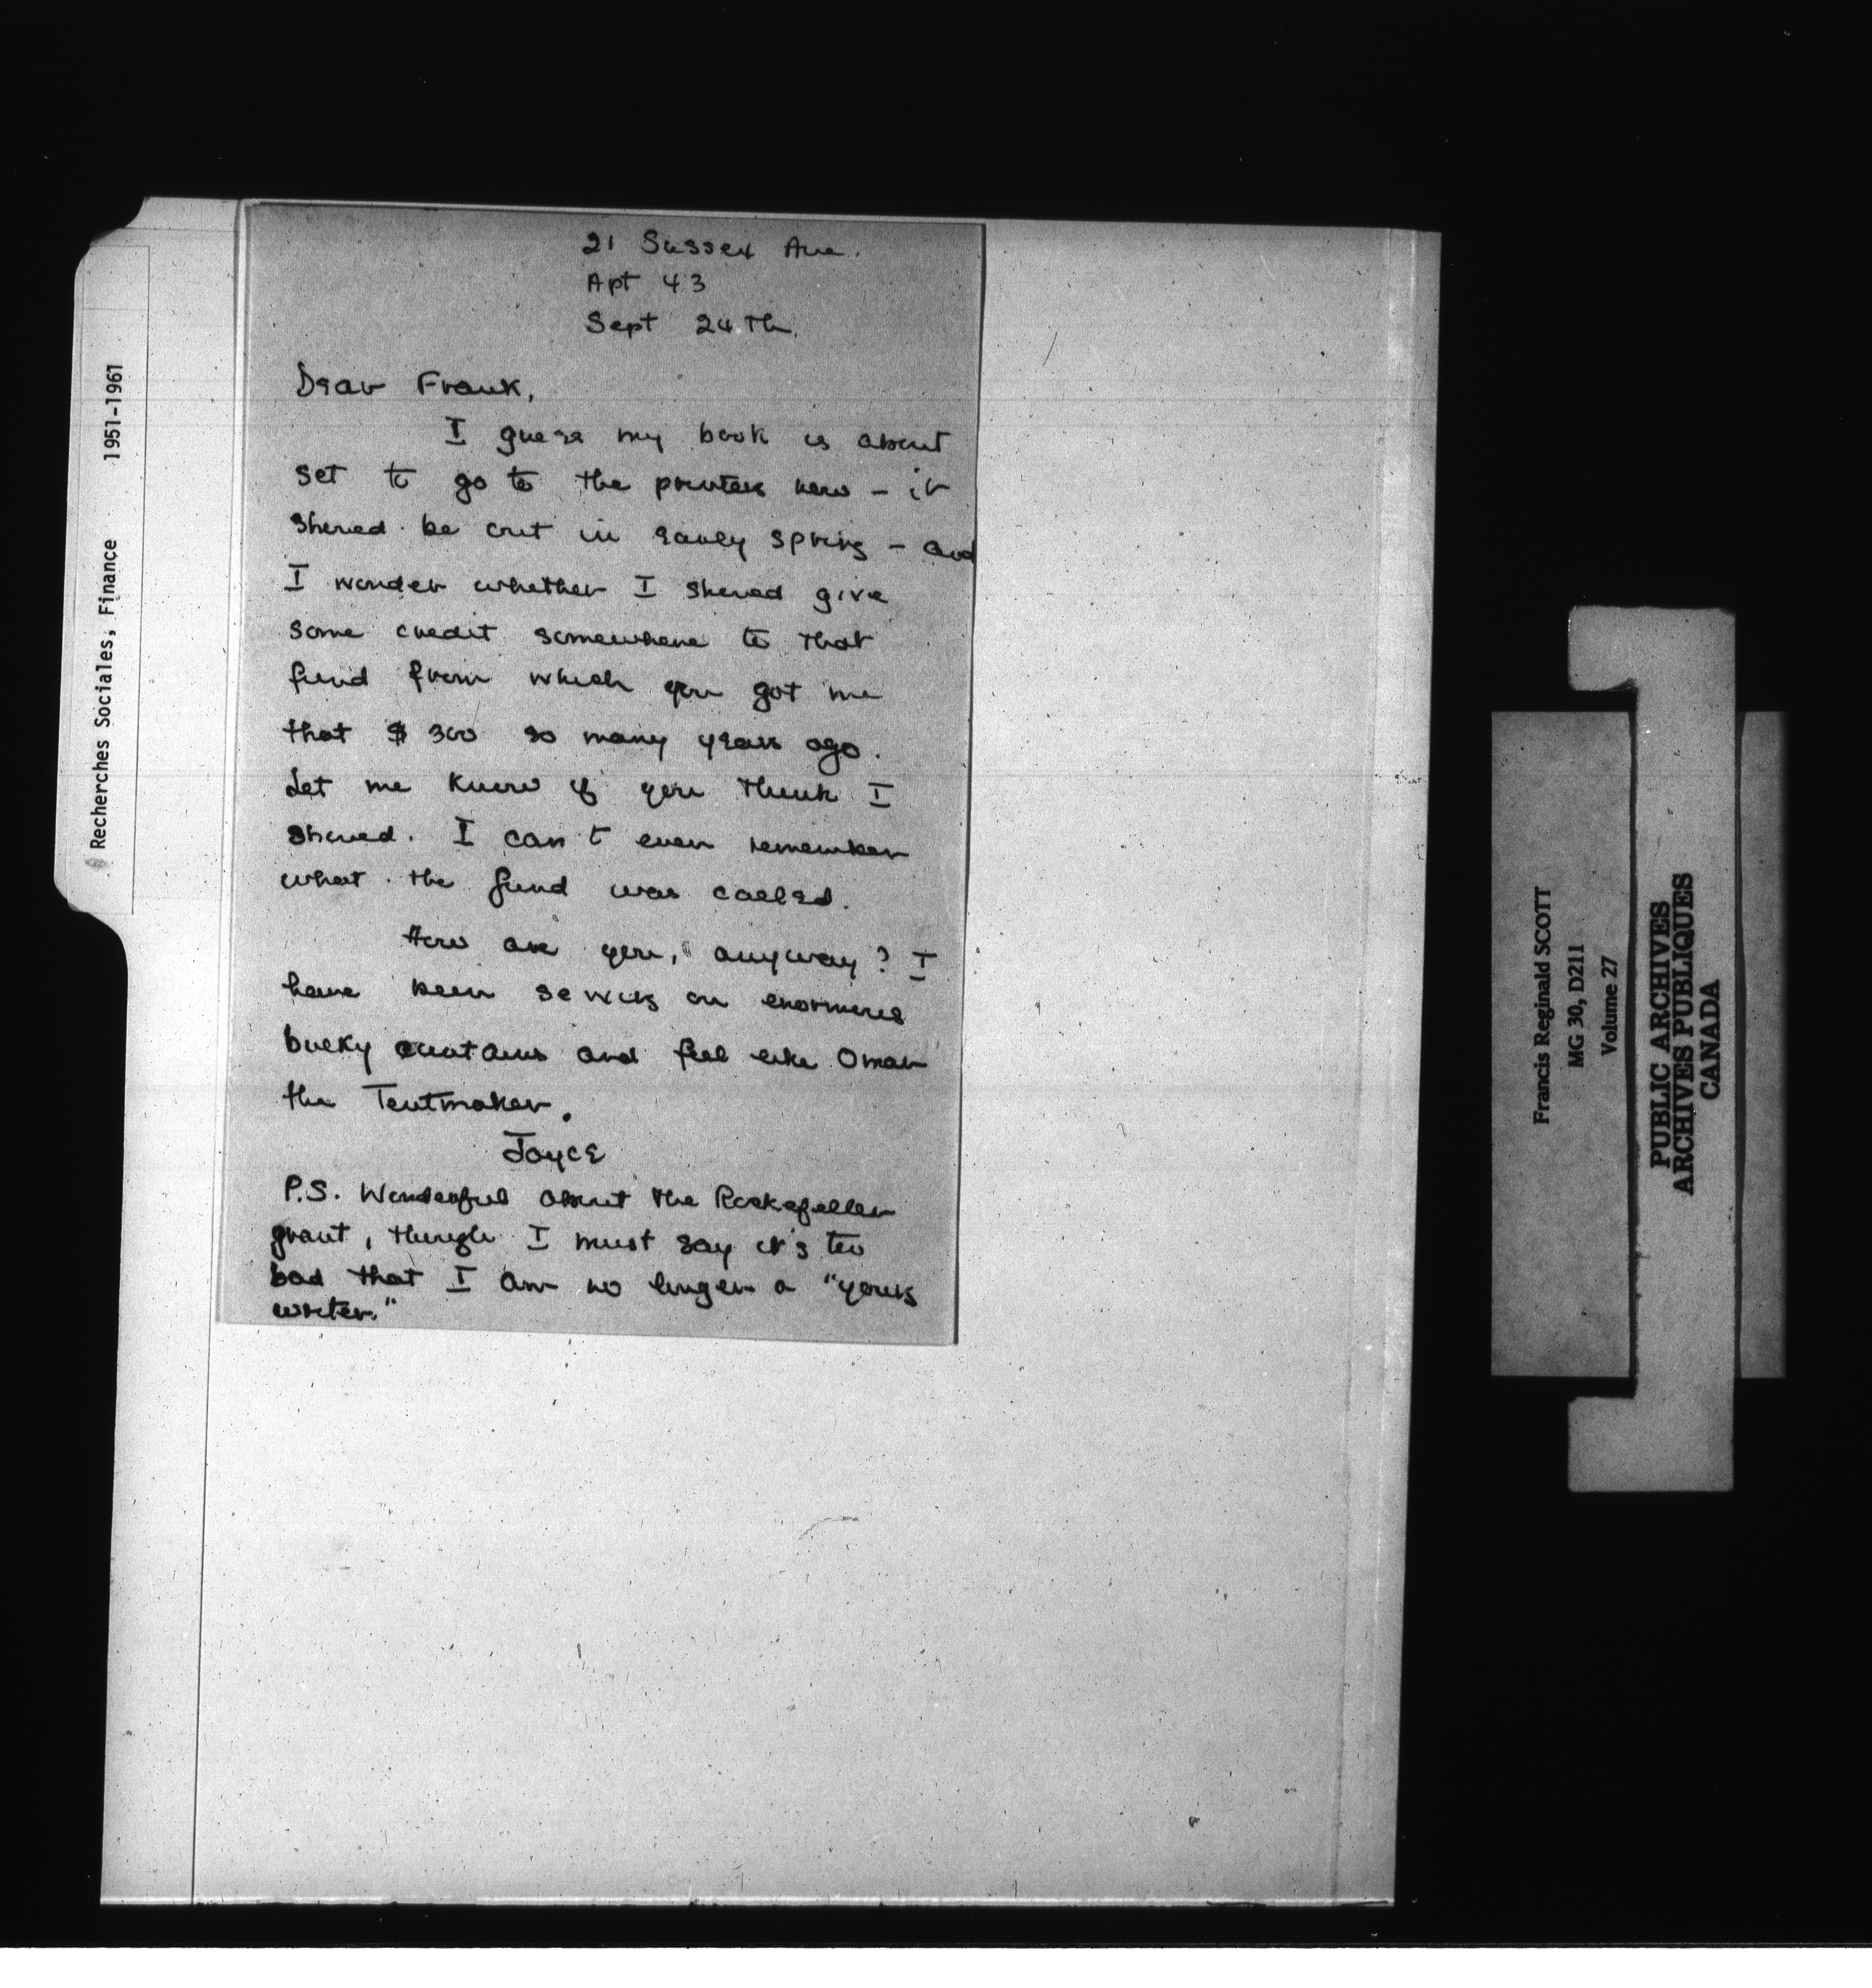 Recherches Sociales, Finance 1951-1961
21 Sussex Ave.
Apt 43
Sept 24th.
Dear Frank,
I guess my book is about
set to go to the printers now - it
should be out in early spring - and
I wonder whether I should give
some credit somewhere to that
fund from which you got me
that $300 so many years ago.
Let me know if you think I
should. I can't even remember
what the fund was called.
How are you, anyway? I
have been sewing on enormous
bulky curtains and feel like Omar
the Tentmaker.
Joyce
P.S. Wonderful about the Rockefeller
grant, though I must say it's too
bad that I am no longer a "young
writer."
Francis Reginald SCOTT
MG 30, D211
Volume 27
PUBLIC ARCHIVES
ARCHIVES PUBLIQUES
CANADA